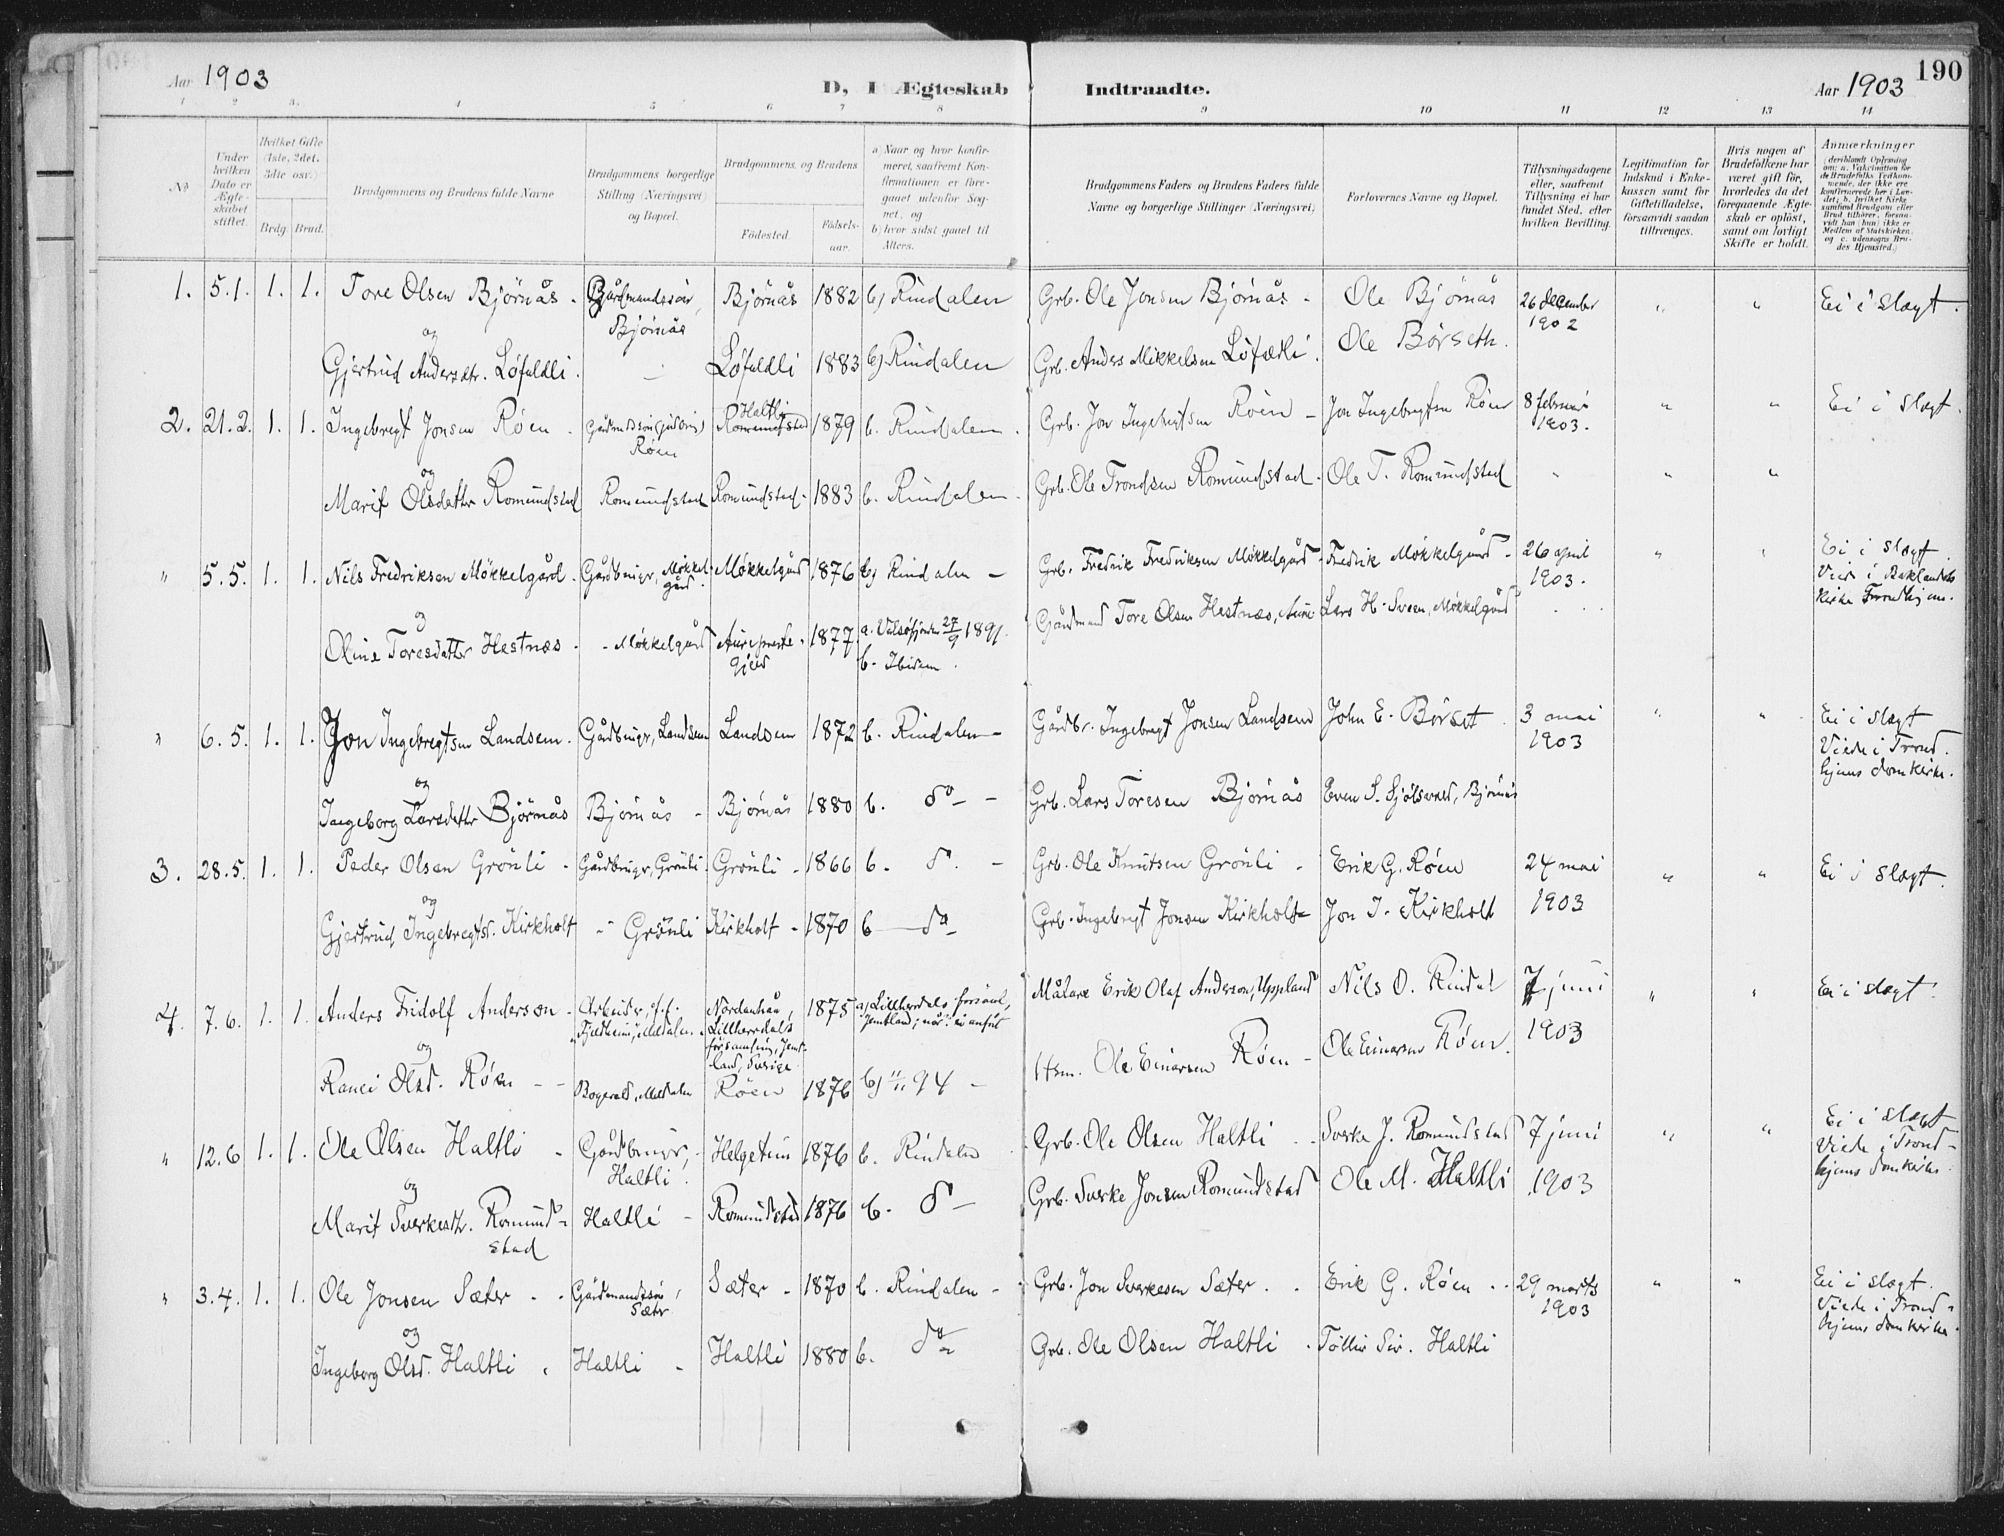 Aar 1903
D, I Ægteskab Indtraadte.
Aar 1903
190
1 2 3. 4 5 6 7 8 9 10 11 12 13 14
№
Under hvilken Dato er Ægteskabet stiftet.
Hvilket Gifte (1ste, 2det, 3die osv.)
Brdg. Brud.
Brudgommens og Brudens fulde Navne
Brudgommens borgerlige Stilling (Næringsvei) og Bopæl.
Brudgommens og Brudens
Fødested. Fødselsaar.
a Naar og hvor konfirmeret, saafremt Konfirmationen er foregaaet udenfor Sognet, og
b) hvor sidst gaaet til Alters.
Brudgommens Faders og Brudens Faders fulde Navne og borgerlige Stillinger (Næringsvei)
Forlovernes Navne og Bopæl.
Tillysningsdagene eller, saafremt Tillysning ei har fundet Sted, efter hvilken Bevilling.
Legitimation for Indskud i Enkekassen samt for Giftetilladelse, forsaavidt saadan tiltrænges.
Hvis nogen af Brudefolkene har været gift før, hvorledes da det foregaaende Ægteskab er opløst, samt om lovligt Skifte er holdt.
Anmærkninger
1. 5.1. 1. 1. Tore Olsen Bjørnås. Gårdmandssøn, Bjørnås Bjørnås 1882 b) Rindalen Grb. Ole Jonsen Bjørnås - Ole Bjørnås 26 december 1902 " " Ei i slægt.
og
Gjertrud Andersdtr. Løfaldli. Løfaldli 1883 b) Rindalen Grb. Anders Mikkelsen Løfaldli. Ole Børseth.
2. 21.2. 1. 1. Ingebregt Jonsen Røen - Røen Haltli Romundstad 1879 b. Rindalen. Grb. Jon Ingebregtsen Røen - Jon Ingebregtsen Røen 8 februar 1903. " " Ei i slægt.
og
Marit Olsdatter Romundstad Romundstad Romundstad - 1883 b. Rindalen. Grb. Ole Trondsen Romundstad - Ole T. Romundstad " " "
" 5.5. 1. 1. Nils Fredriksen Møkkelgård. Gårdbruger, Møkkelgård. Møkkelgård 1876 b) Rindalen - Grb. Fredrik Fredriksen Møkkelgård - Fredrik Møkkelgård - 26 april 1903. " " Ei i slægt. Viede i Baklandets kirke Trondhjem.
og
Oline Toresdatter Hestnæs. - Møkkelgård Aure præstegjeld 1877 a. Valsøfjorden 27/9 1891. b. Ibidem. Gårdmand Tore Olsen Hestnæs, Aure Lars H. Sveen, Møkkelgård
" 6.5. 1. 1. Jon Ingebregtsen Landsem. Gårdbruger, Landsem Landsem 1872 b. Rindalen - Gårdbr. Ingebregt Jonsen Landsem John E. Børset. 3 mai 1903 " " Ei i slægt Viede i Trondhjems domkirke.
og
Ingeborg Larsdatter Bjørnås Bjørnås - Bjørnås 1880 b. do - Grb. Lars Toresen Bjørnås Even S. , Bjørnås
3. 28.5. 1. 1. Peder Olsen Grønli - Gårdbruger, Grønli. Grønli - 1866 b. do. - Grb. Ole Knutsen Grønli - Erik G. Røen 24 mai 1903 " " Ei i slægt.
og
Gjertrud Ingebregtsd. Kirkholt - Grønli Kirkholt - 1870 b do Grb. Ingebregt Jonsen Kirkholt - Jon I. Kirkholt
4. 7.6. 1. 1. Anders Fridolf Anderson - Arbeider, p.t. "Fjeldheim," Meldalen. Nordanhån, Lillherrdals församling, Jemtland, Sverige. 1875 a) Lillherdals forsaml, Jemtland; når? ei anført Målare Erik Olaf Anderson, Uppland Nils O. Rindal 7 juni 1903 " " Ei i slægt.
og
Ranei Olsd. Røen - - , Meldalen Røen 1876 b) 11/11 94 - Hsm. Ole Einarsen Røen - Ole Einarsen Røen.
" 12.6 1. 1. Ole Olsen Haltli - Gårdbruger, Haltli. Helgetun 1876 b. Rindalen Grb. Ole Olsen Haltli - Sverke J. Romundstad 7 juni 1903 " " Ei i slægt Viede i Trondhjems domkirke.
og
Marit Sverkesdtr. Romundstad Haltli - Romundstad 1876 b. do - Grb. Sverke Jonsen Romundstad Ole M. Haltli
" 3.4. 1. 1. Ole Jonsen Sæter - - Gårdmandssøn, Sæter Sæter - 1870 b. Rindalen - Grb. Jon Sverkesen Sæter. - Erik G. Røen - 29 marts 1903 " " Ei i slægt. Viede i Trondhjems domkirke.
og
Ingeborg Olsd. Haltli. Haltli - Haltli 1880 b. do Grb. Ole Olsen Haltli - Haltli